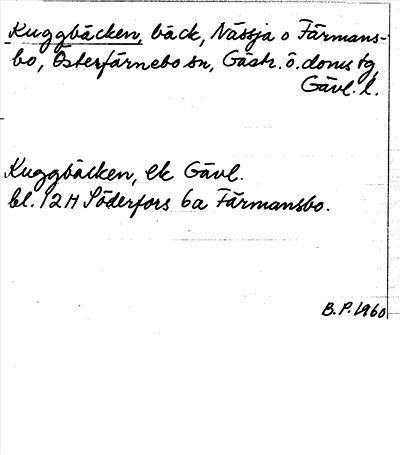 Kuggbäcken, bäck, Nässja o Färmans-
bo, Österfärnebo sn, Gästr. ö. doms tg,
Gävl. l.
Kuggbäcken, ek Gävl.
bl. 12H Söderfors 6a Färmansbo.
B.P. 1960